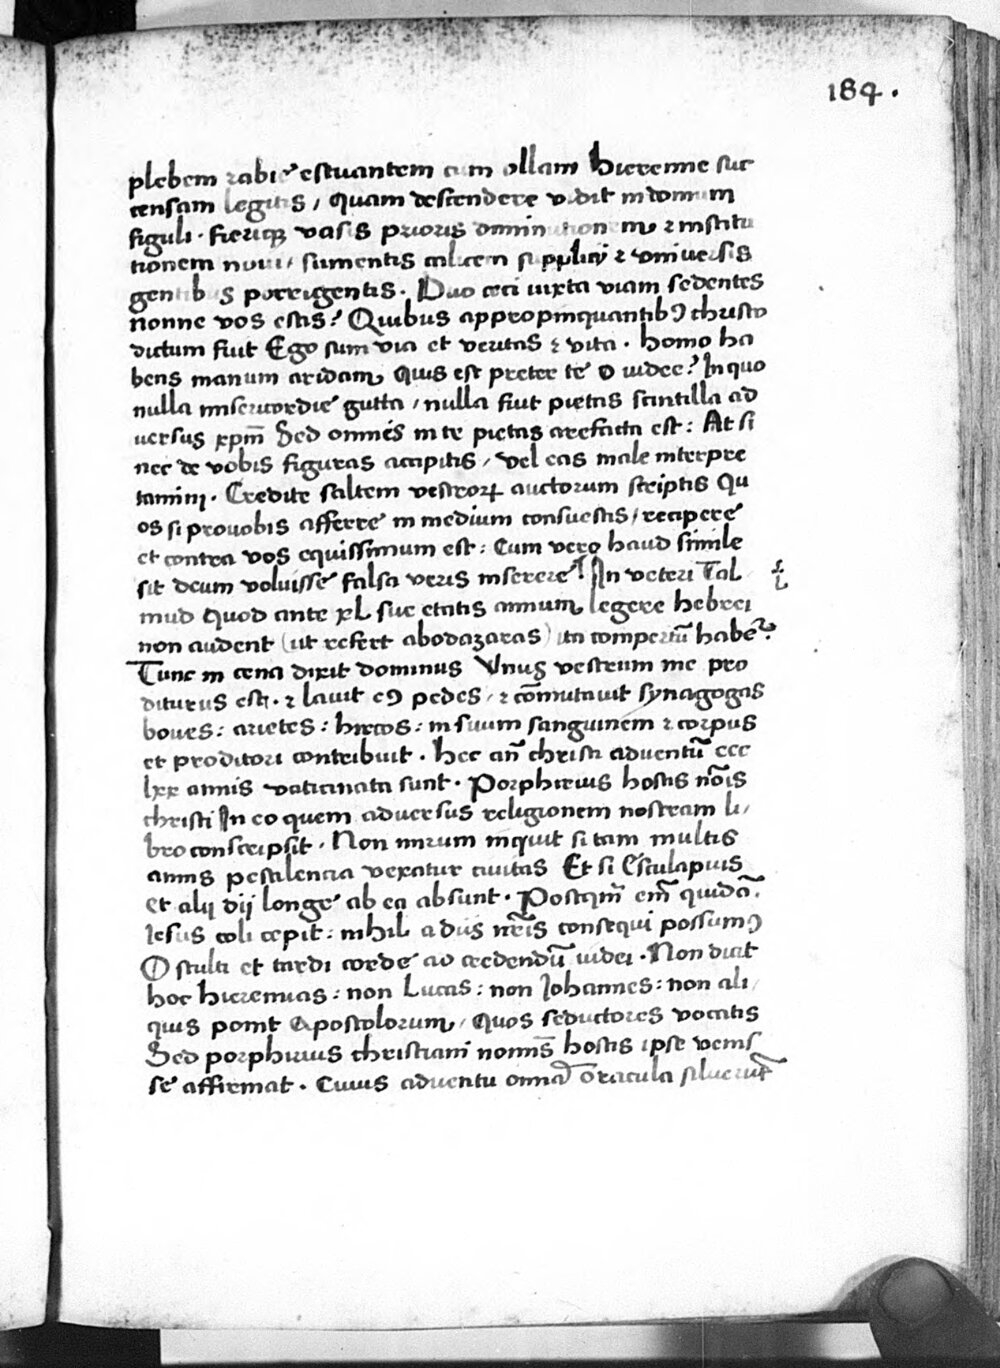 184.
plebem rabie estuantem cum ollam Hieremie suc
censam legitis / quam descendere vidit in domum
figuli. fierique vasis prioris dominationem & institu
tionem novi, sumentis calicem supplicij & universis
gentibus porrigentis. Duo ceci iuxta viam sedentes
nonne vos estis? Quibus appropinquantibꝰ christo
dictum fuit Ego sum via et veritas & vita. homo ha
bens manum aridam, quis est preter te o iudee? In quo
nulla misericordie gutta, nulla fiut pietas scintilla ad
uersus xpm̄ Sed omnis in te pietas arefacta est: At si
nec de vobis figuras accipitis, vel eas male interpre
tamini. Credite saltem vestroꝝ auctorum scriptis Qu
os si pro uobis afferre in medium consuestis, recipere
et contra vos equissimum est: Cum vero haud simile
sit deum voluisse falsa veris inserere! In veteri Tal
mud quod ante xL sue etatis annum legere hebrei
non audent (ut refert abodazaras) ita compertū habet̃.
Tunc in cena dixit dominus Vnus vestrum me pro
diturus est. & lavit eꝰ pedes, & cōmutavit synagogas
boves: arietes: hircos: in suum sanguinem & corpus
et proditori contribuit. hec an̄ christi adventū ccc
lxx annis vaticinata sunt. Porphirius hostis nōis
christi In eo quem adversus religionem nostram li,
bro conscripsit. Non mirum inquit si tam multis
annis pestilencia vexatur civitas Et si Esculapius
et alij dij longe ab ea absunt. Postqm̄ em̄ quidā
Iesus coli cepit: nihil a diis nr̄is consequi possumꝰ
O stulti et tardi corde ad credendū iudei. Non dicit
hoc hieremias: non Lucas: non Iohannes: non ali,
quis ponit Apostolorum, quos seductores vocatis
Sed porphirius christiani nominis hostis ipse venis
se affirmat. Cuius adventu omnia oracula siluerūt